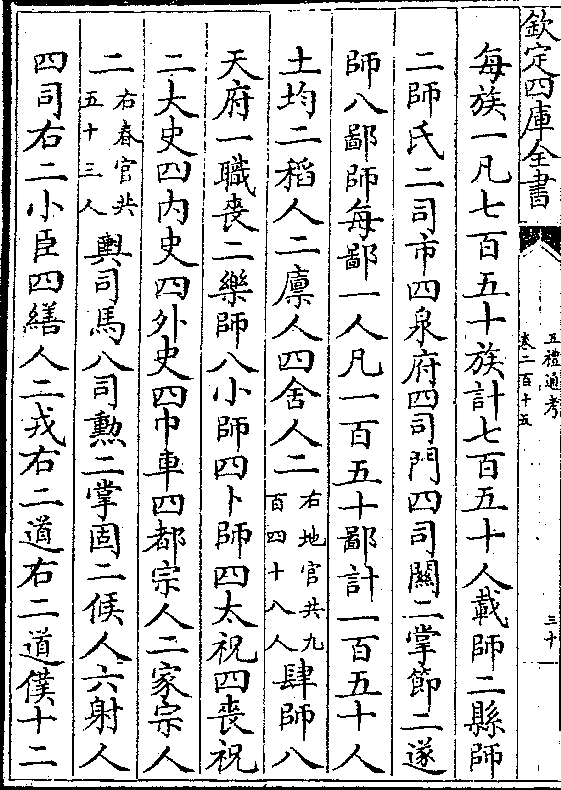 欽定四庫全書
五禮通考
卷二百十五
三十
每族一凡七百五十族計七百五十人載師二縣師
二師氏二司市四泉府四司門四司關二掌節二遂
師八鄙師每鄙一人凡一百五十鄙計一百五十人
土均二稻人二廪人四舍人二右地官共九百四十八人肆師八
天府一職喪二樂師八小師四卜師四太祝四喪祝
二大史四内史四外史四巾車四都宗人二家宗人
二右春官共五十三人輿司馬八司勲二掌固二候人六射人
四司右二小臣四繕人二戎右二道右二道僕十二